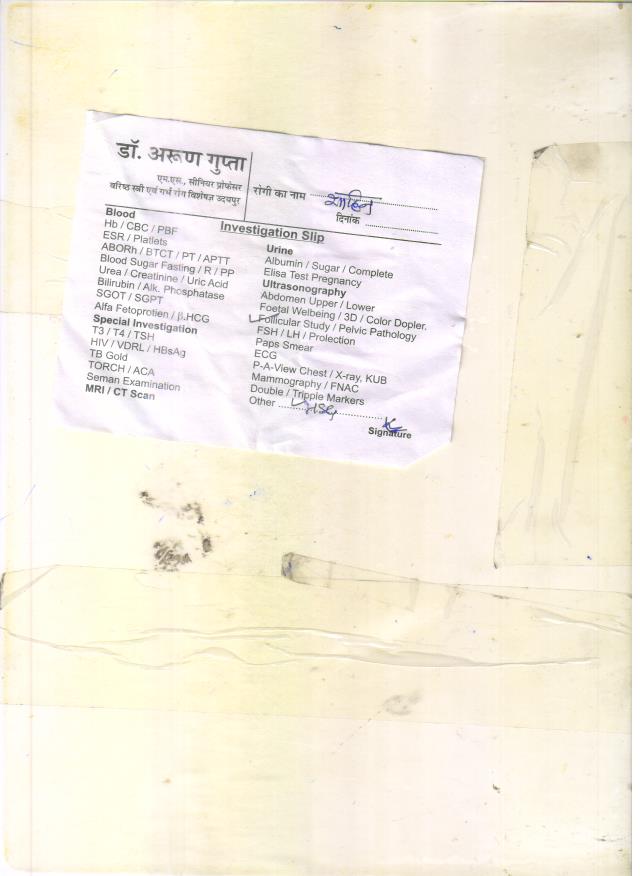 डॉ. अरूण गुप्ता
एम.एस., सीनियर प्रोफेसर
वरिष्ठ स्त्री एवं गर्भ रोग विशेषज्ञ उदयपुर
रोगी का नाम
दिनांक
Investigation Slip
Blood
Hb / CBC / PBF
ESR / Platlets
ABORh / BTCT / PT / APTT
Blood Sugar Fasting / R / PP
Urea / Creatinine / Uric Acid
Bilirubin / Alk. Phosphatase
SGOT / SGPT
Alfa Fetoprotien / β.HCG
Special Investigation
T3 / T4 / TSH
HIV / VDRL / HBsAg
TB Gold
TORCH / ACA
Seman Examination
MRI / CT Scan
Urine
Albumin / Sugar / Complete
Elisa Test Pregnancy
Ultrasonography
Abdomen Upper / Lower
Foetal Welbeing / 3D / Color Dopler.
Follicular Study / Pelvic Pathology
FSH / LH / Prolection
Paps Smear
ECG
P-A-View Chest / X-ray, KUB
Mammography / FNAC
Double / Tripple Markers
Other HSG
Signature